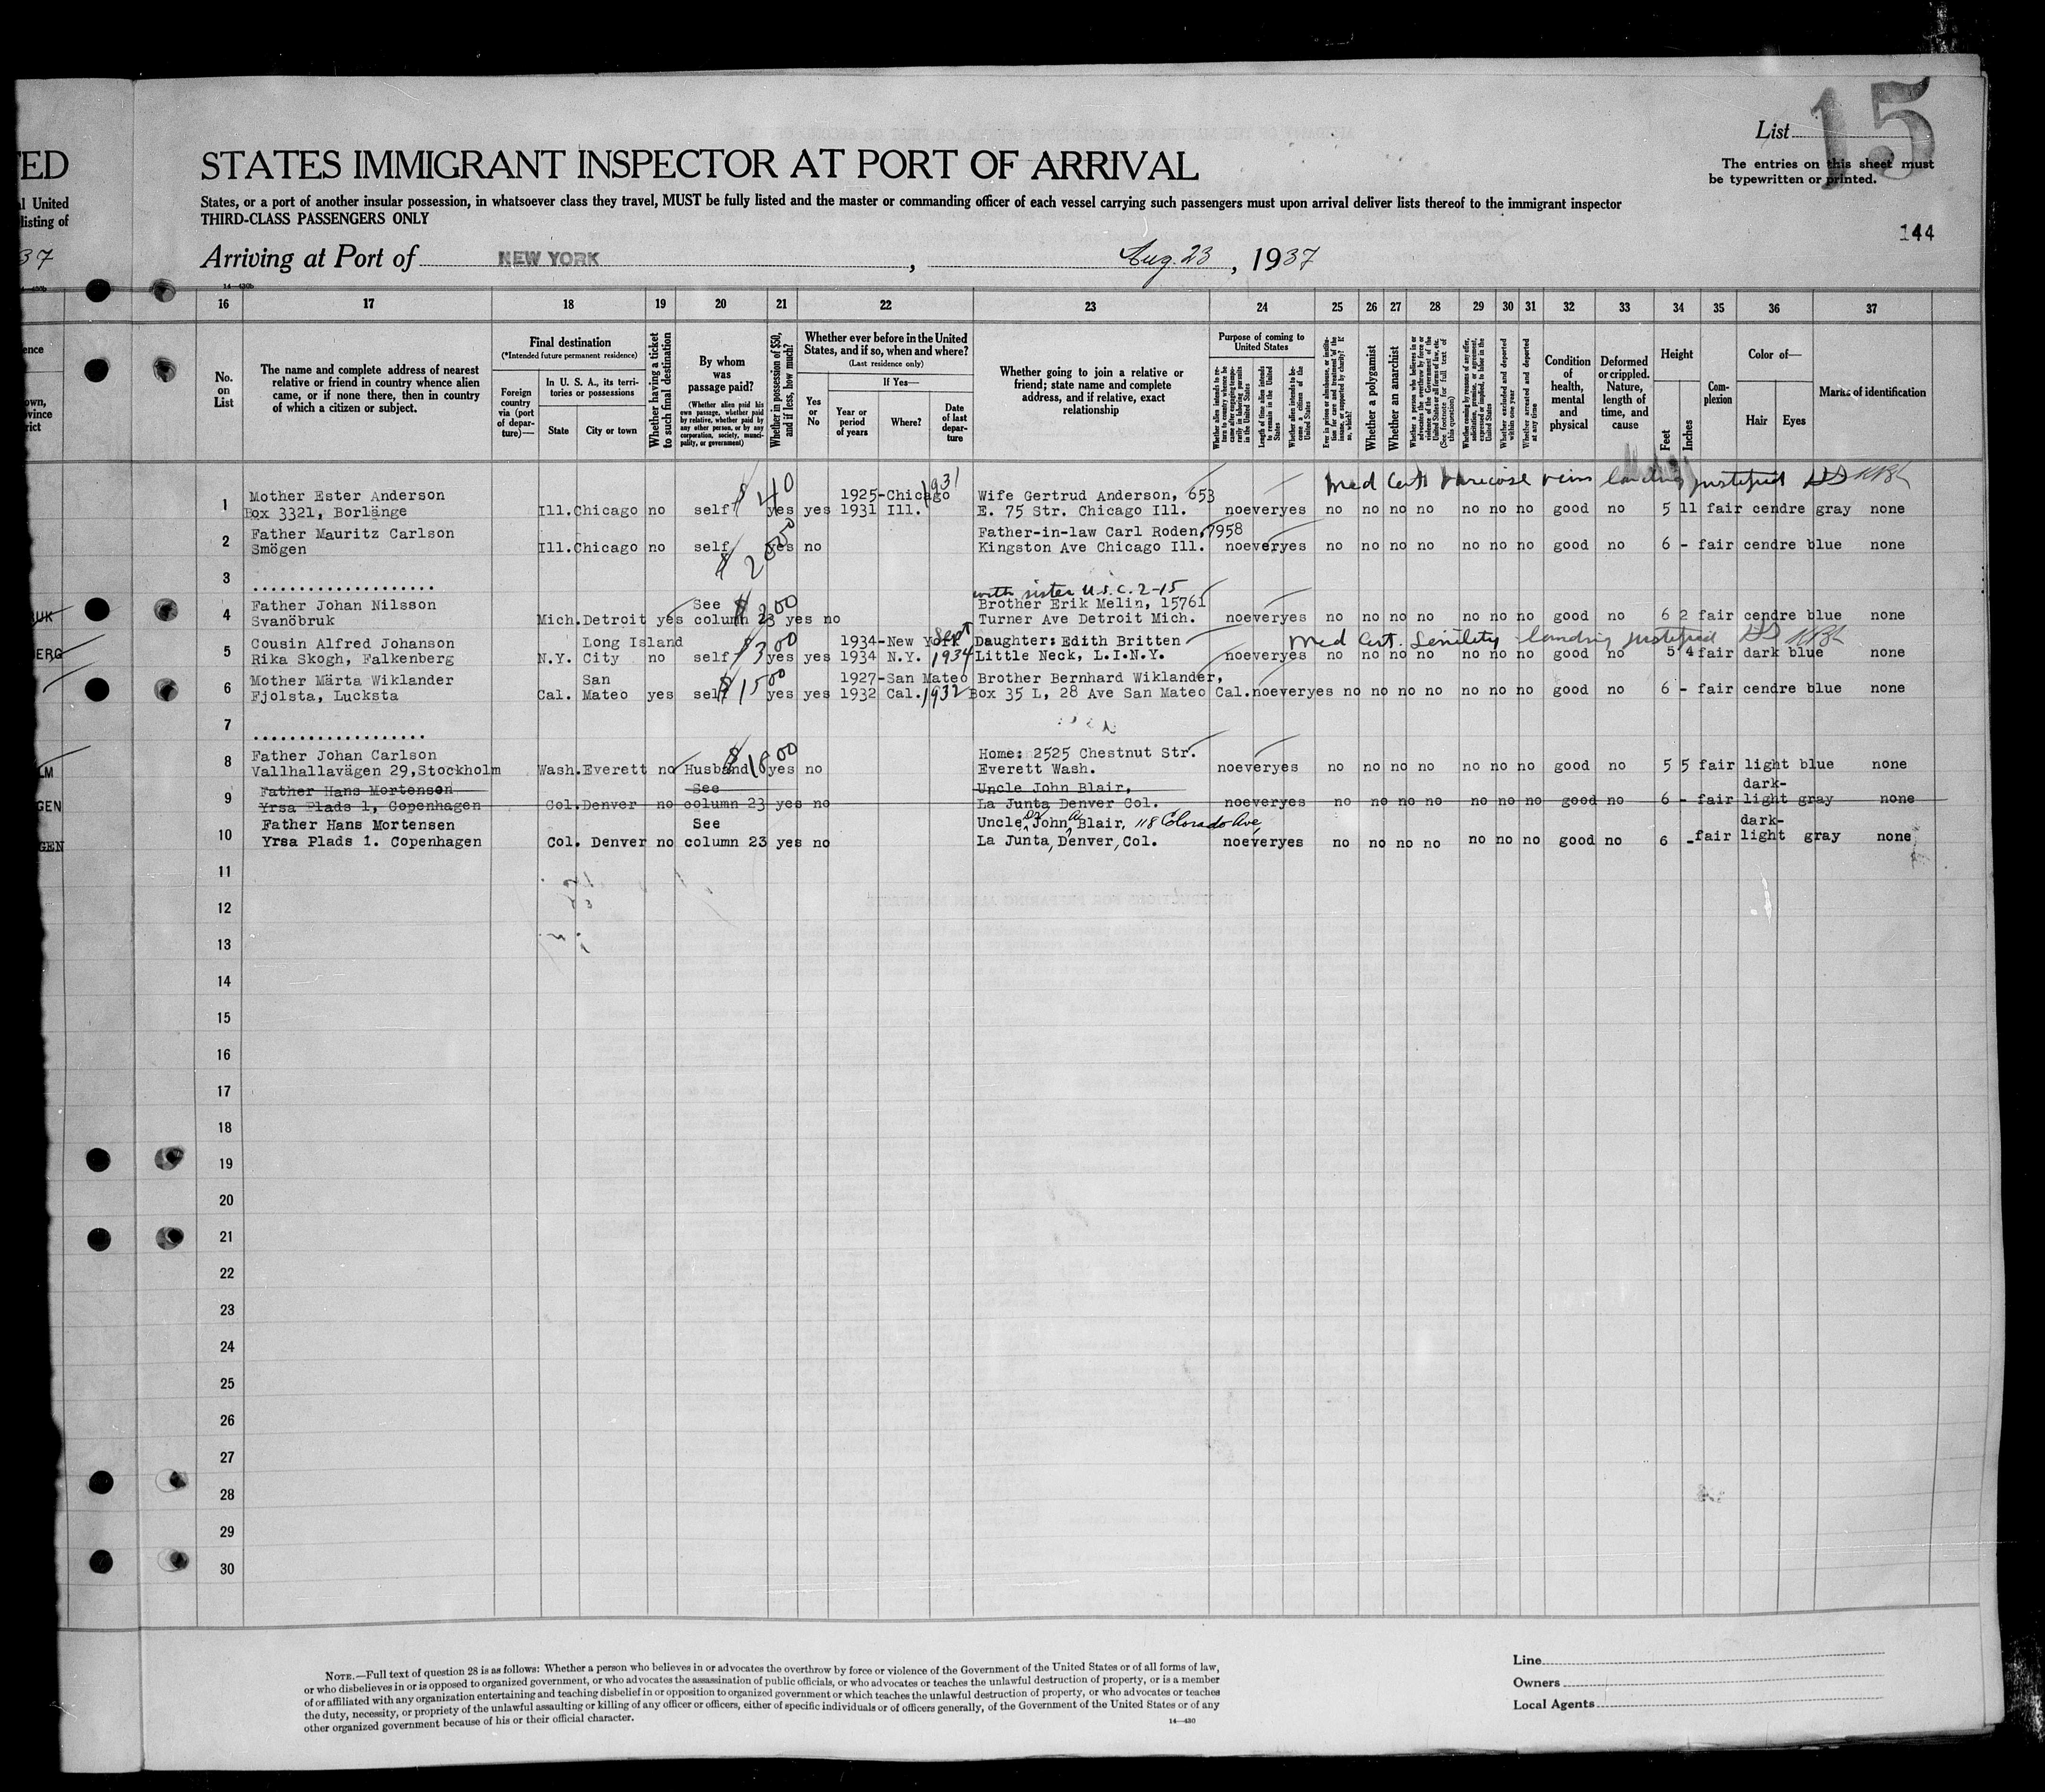 List 15
The entries on this sheet must
be typewritten or printed.
144
ED
STATES IMMIGRANT INSPECTOR AT PORT OF ARRIVAL
l United
listing of
37
States, or a port of another insular possession, in whatsoever class they travel, MUST be fully listed and the master or commanding officer of each vessel carrying such passengers must upon arrival deliver lists thereof to the immigrant inspector
THIRD-CLASS PASSENGERS ONLY
Arriving at Port of NEW YORK, Aug. 23, 1937
14—430b
16 17 18 19 20 21 22 23 24 25 26 27 28 29 30 31 32 33 34 35 36 37
No. on List
The name and complete address of nearest
relative or friend in country whence alien
came, or if none there, then in country
of which a citizen or subject.
Final destination
(*Intended future permanent residence)
Foreign country via (port of departure)—
In U. S. A., its territories or possessions
State
City or town
Whether having a ticket to such final destination
By whom was passage paid?
(Whether alien paid his own passage, whether paid by relative, whether paid by any other person, or by any corporation, society, municipality, or government)
Whether in possession of $50, and if less, how much?
Whether ever before in the United States, and if so, when and where?
(Last residence only)
Yes or No
If Yes—
Year or period of years
Where?
Date of last departure
Whether going to join a relative or
friend; state name and complete
address, and if relative, exact
relationship
Purpose of coming to United States
Whether alien intends to return to country whence he came after engaging temporarily in laboring pursuits in the United States
Length of time alien intends to remain in the United States
Whether alien intends to become a citizen of the United States
Ever in prison or almshouse, or institution for care and treatment of the insane, or supported by charity? If so, which?
Whether a polygamist
Whether an anarchist
Whether a person who believes in or advocates the overthrow by force or violence of the Government of the United States or all forms of law, etc. (See footnote for full text of this question)
Whether coming by reasons of any offer, solicitation, promise, or agreement, expressed or implied, to labor in the United States
Whether excluded and deported within one year
Whether arrested and deported at any time
Condition of health, mental and physical
Deformed or crippled. Nature, length of time, and cause
Height
Feet
Inches
Complexion
Color of—
Hair
Eyes
Marks of identification
Med Cert Varicose veins landing justified
1931
$40
1 Mother Ester Anderson 1925-Chicago Wife Gertrud Anderson, 653
Box 3321, Borlänge Ill. Chicago no self yes yes 1931 Ill. E. 75 Str. Chicago Ill. no ever yes no no no no no no no good no 5 11 fair cendre gray none
$2000
2 Father Mauritz Carlson Father-in-law Carl Roden, 7958
Smögen Ill. Chicago no self yes no Kingston Ave Chicago Ill. no ever yes no no no no no no no good no 6 - fair cendre blue none
3 .....................
with sister U.S.C. 2-15
$200
4 Father Johan Nilsson See Brother Erik Melin, 15761
Svanöbruk Mich. Detroit yes column 23 yes no Turner Ave Detroit Mich. no ever yes no no no no no no no good no 6 2 fair cendre blue none
Med Cert. Senility landing justified
$300
5 Cousin Alfred Johanson Long Island 1934-New York Sept Daughter: Edith Britten
Rika Skogh, Falkenberg N.Y. City no self yes yes 1934 N.Y. 1934 Little Neck, L.I.N.Y. no ever yes no no no no no no no good no 5 4 fair dark blue none
$1500
6 Mother Märta Wiklander San 1927-San Mateo Brother Bernhard Wiklander,
Fjolsta, Lucksta Cal. Mateo yes self yes yes 1932 Cal. 1932 Box 35 L, 28 Ave San Mateo Cal. no ever yes no no no no no no no good no 6 - fair cendre blue none
7 ...................
$1800
8 Father Johan Carlson Home: 2525 Chestnut Str.
Vallhallavägen 29, Stockholm Wash. Everett no Husband yes no Everett Wash. no ever yes no no no no no no no good no 5 5 fair light blue none
9 Father Hans Mortenson See Uncle John Blair, dark-
Yrsa Plads 1, Copenhagen Col. Denver no column 23 yes no La Junta Denver Col. no ever yes no no no no no no no good no 6 - fair light gray none
10 Father Hans Mortensen See Uncle, Dr John A Blair, 118 Colorado Ave, dark-
Yrsa Plads 1. Copenhagen Col. Denver no column 23 yes no La Junta, Denver, Col. no ever yes no no no no no no no good no 6 - fair light gray none
11
12
13
14
15
16
17
18
19
20
21
22
23
24
25
26
27
28
29
30
NOTE.—Full text of question 28 is as follows: Whether a person who believes in or advocates the overthrow by force or violence of the Government of the United States or of all forms of law,
or who disbelieves in or is opposed to organized government, or who advocates the assassination of public officials, or who advocates or teaches the unlawful destruction of property, or is a member
of or affiliated with any organization entertaining and teaching disbelief in or opposition to organized government or which teaches the unlawful destruction of property, or who advocates or teaches
the duty, necessity, or propriety of the unlawful assaulting or killing of any officer or officers, either of specific individuals or of officers generally, of the Government of the United States or of any
other organized government because of his or their official character.
14—430
Line
Owners
Local Agents